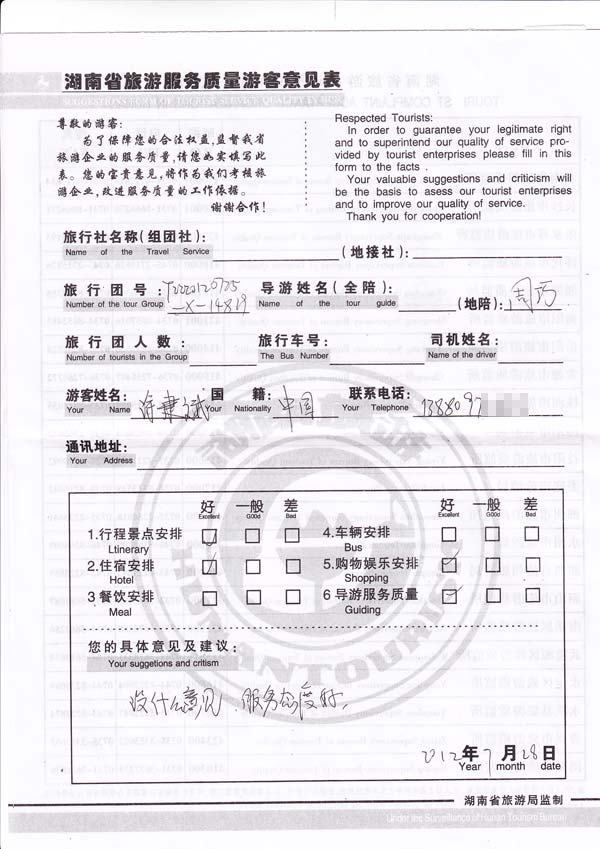 湖南省旅游服务质量游客意见表
SUGGESTIONS FORM OF TOURIST SERVICE QUALITY
尊敬的游客:
为了保障您的合法权益,监督我省
旅游企业的服务质量,请您如实填写此
表。您的宝贵意见,将作为我们考核旅
游企业,改进服务质量的工作依据。
谢谢合作!
Respected Tourists:
In order to guarantee your legitimate right
and to superintend our quality of service pro-
vided by tourist enterprises please fill in this
form to the facts .
Your valuable suggestions and criticism will
be the basis to asess our tourist enterprises
and to improve our quality of service.
Thank you for cooperation!
旅行社名称(组团社): (地接社):
Name of the Travel Service
旅行团号: 导游姓名(全陪): (地陪): 周巧
Number of the tour Group Name of the tour guide
-X-14819
旅行团人数: 旅行车号: 司机姓名:
Number of tourists in the Group The Bus Number Name of the driver
游客姓名: 国籍: 中国 联系电话: 1388097
Your Name Your Nationality Your Telephone
通讯地址:
Your Address
好 一般 差 好 一般 差
Excellent Good Bad Excellent Good Bad
1.行程景点安排 4.车辆安排
Ltinerary Bus
2.住宿安排 5.购物娱乐安排
Hotel Shopping
3 餐饮安排 6 导游服务质量
Meal Guiding
您的具体意见及建议:
Your suggetions and critism
没什么意见、服务态度好.
2012年7月28日
Year month date
湖南省旅游局监制
Under the Surveillance of Hunan Tourism Bureau
HUNANTOURISM